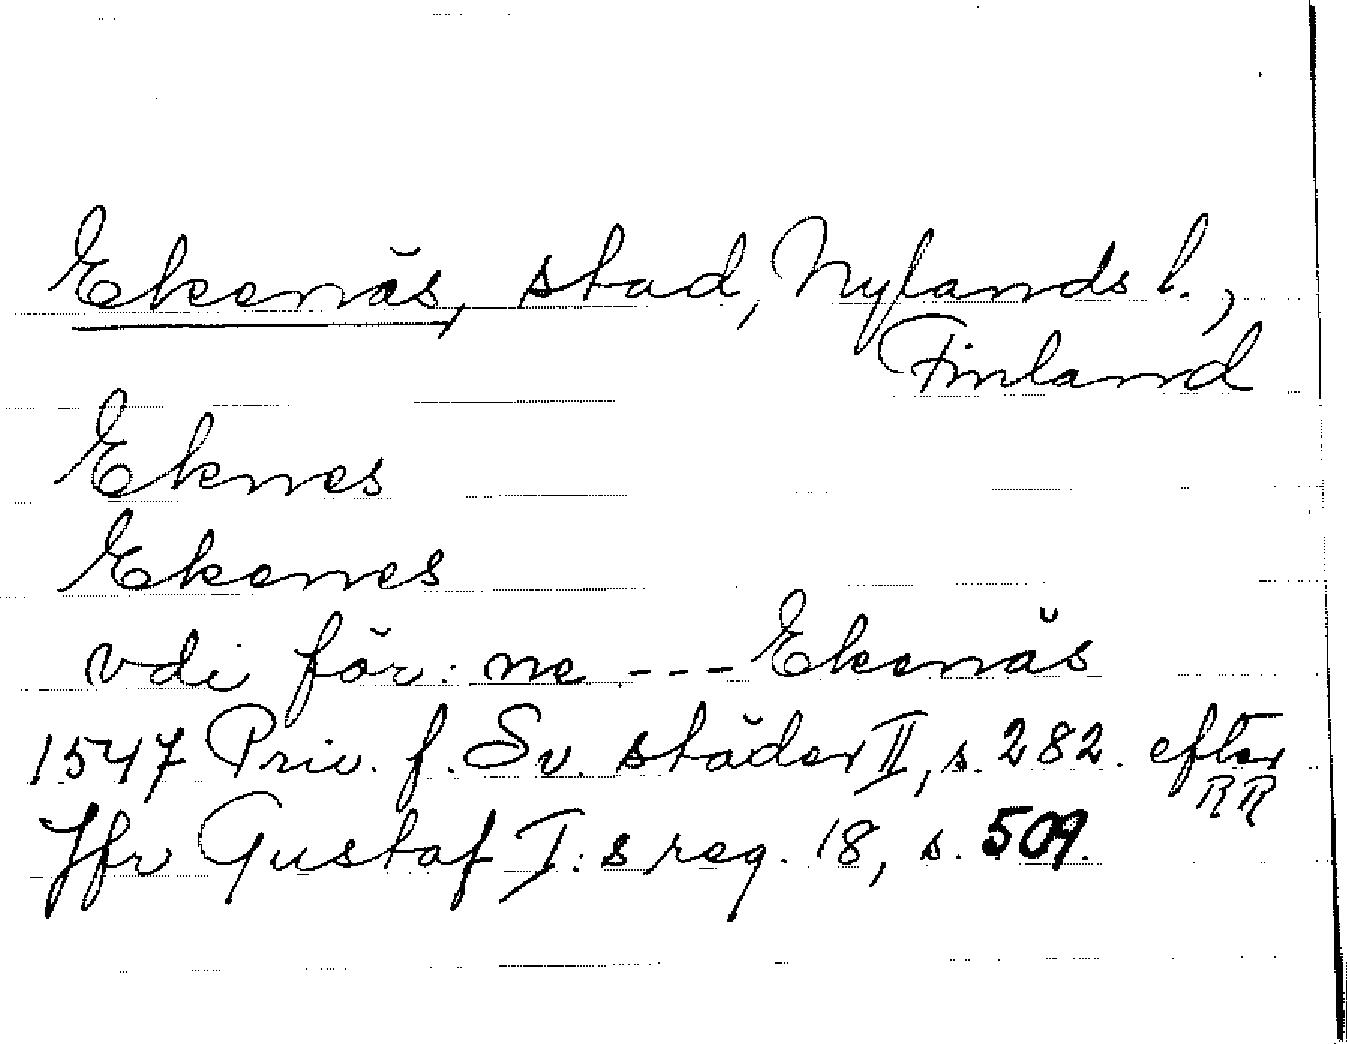 Ekenäs, stad, Nylands l.,
Finland
Eknes
Ekenes
vdi för: ne --- Ekenäs
1547 Priv. f. Sv. städer II, s. 282. efter
RR
Jfr Gustaf I:s reg. 18, s. 509.